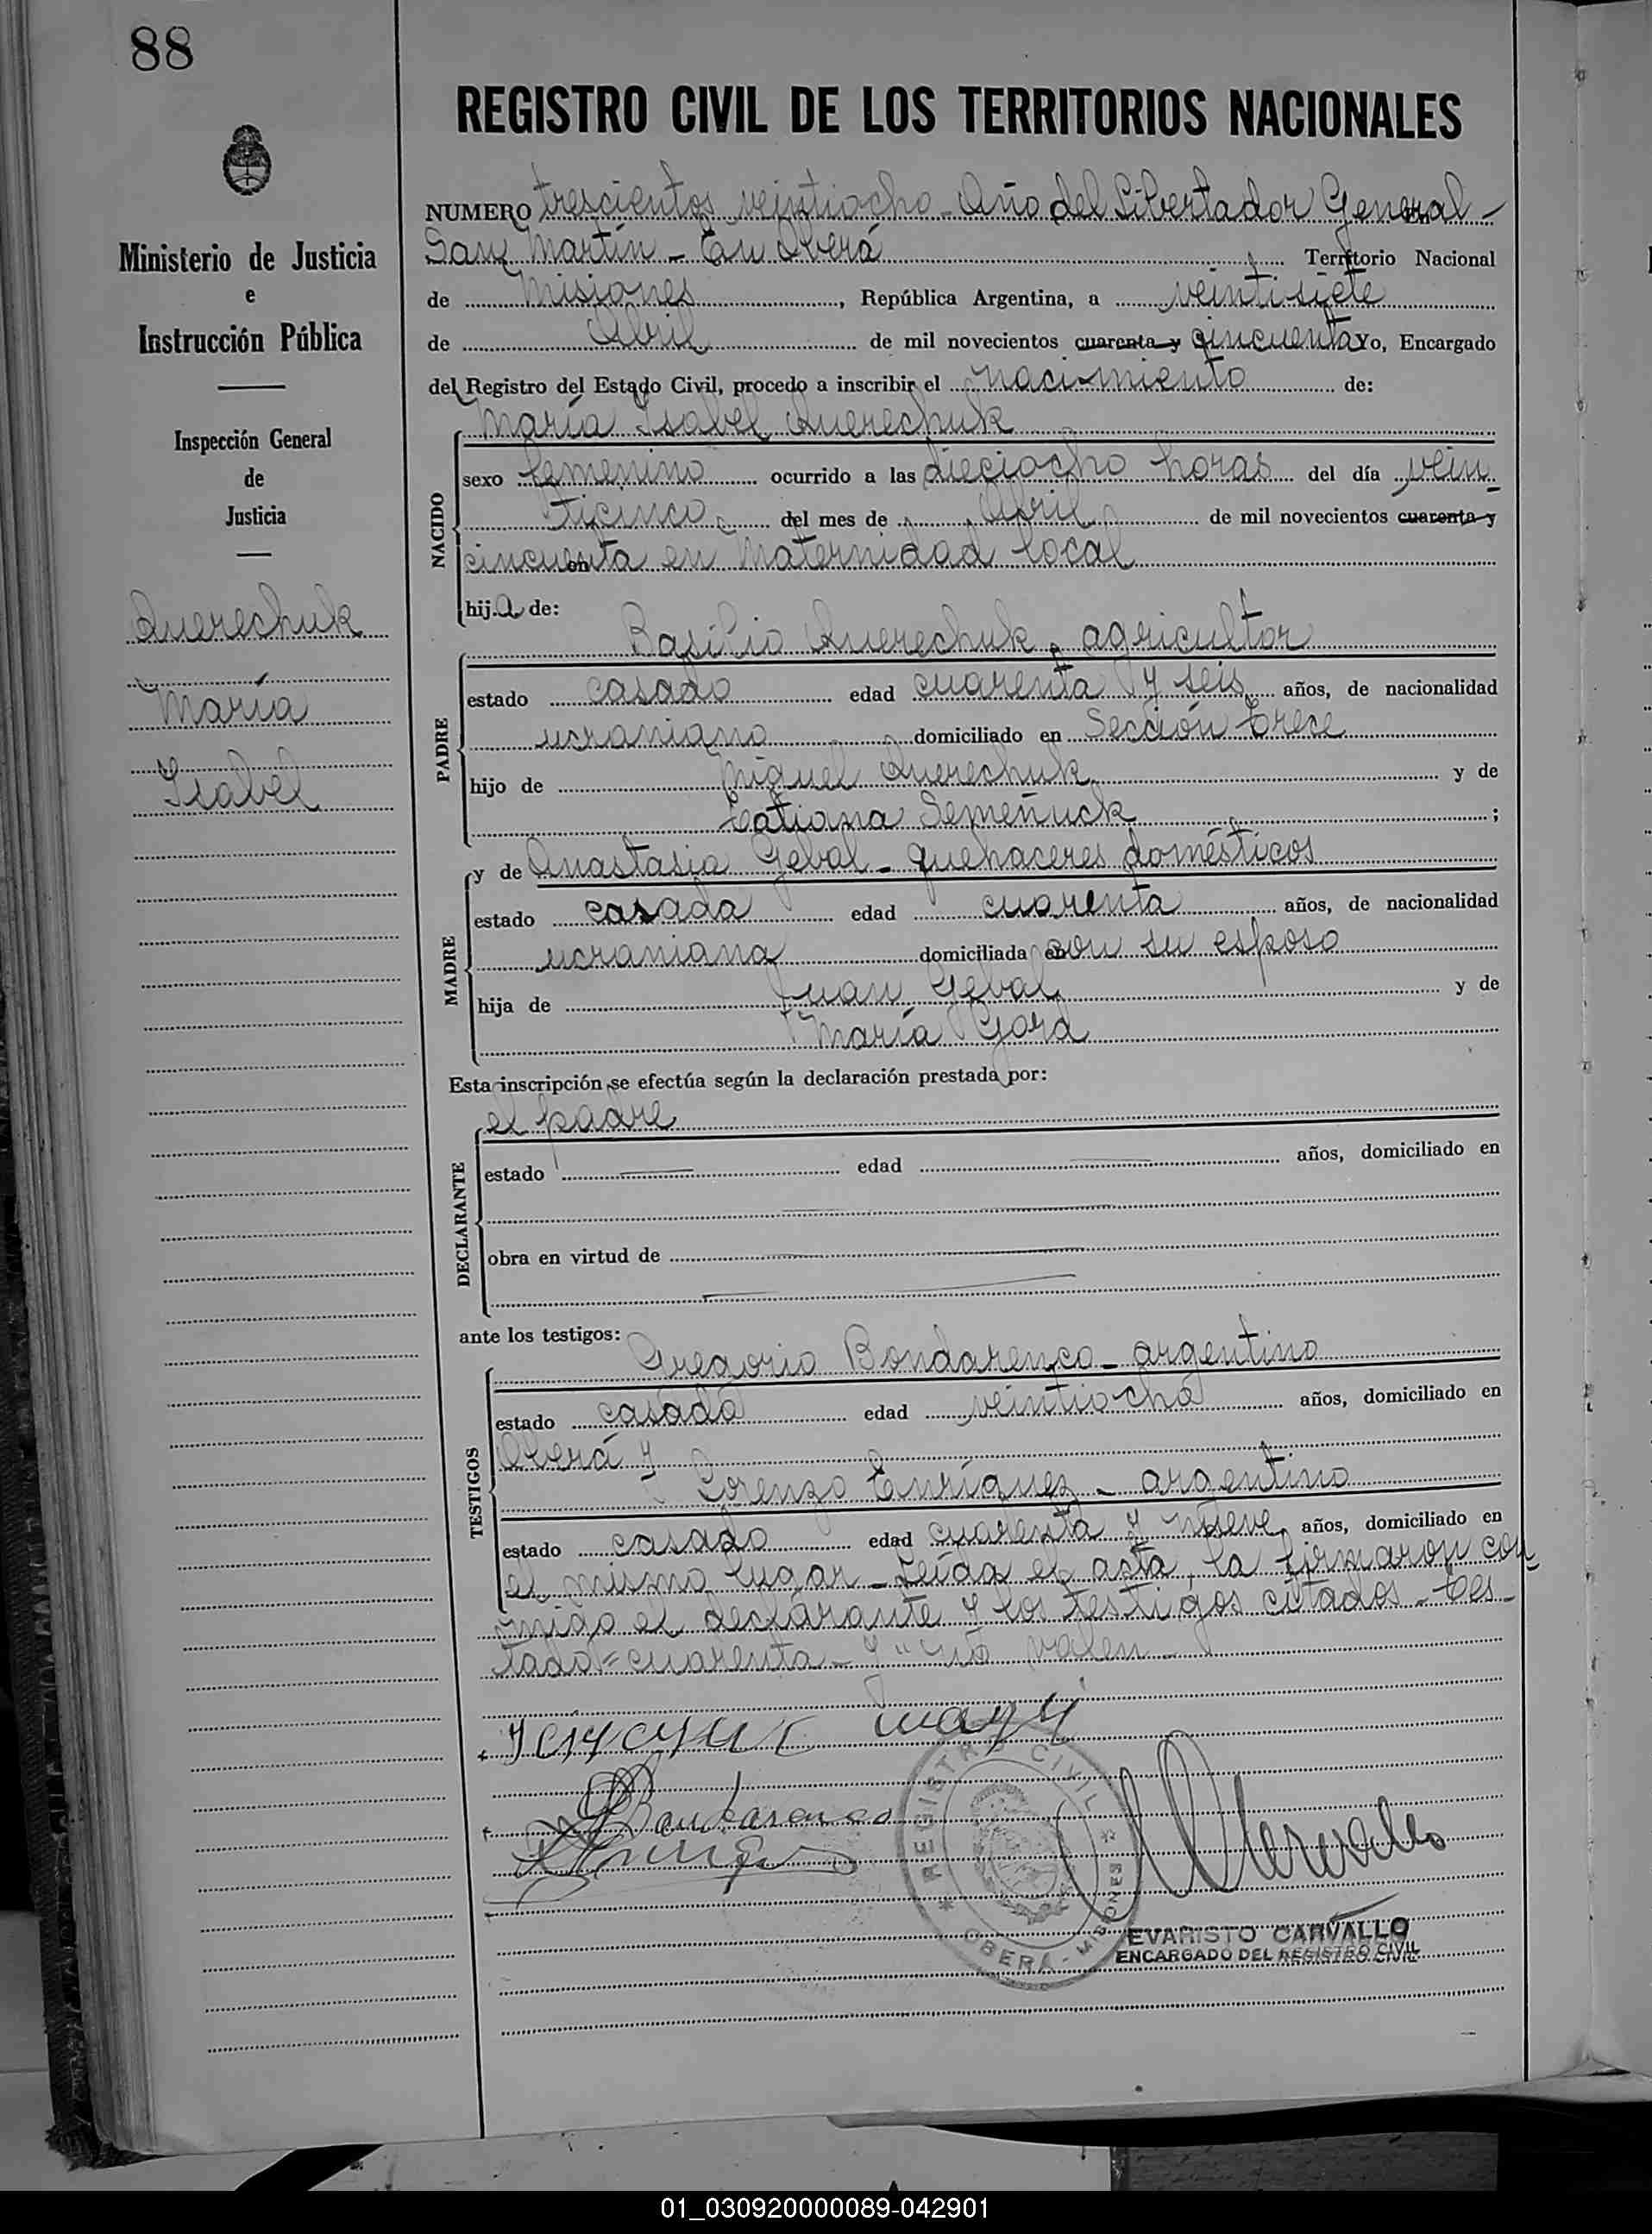 88
REGISTRO CIVIL DE LOS TERRITORIOS NACIONALES
Ministerio de Justicia
e
Instrucción Pública
Inspección General
de
Justicia
Querechuk
María
Isabel
NUMERO trescientos veintiocho - Año del Libertador General -
San Martín - En Oberá Territorio Nacional
de Misiones, República Argentina, a veintisiete
de Abril de mil novecientos cuarenta y cincuenta Yo, Encargado
del Registro del Estado Civil, procedo a inscribir el nacimiento de:
NACIDO
María Isabel Querechuk
sexo femenino ocurrido a las dieciocho horas del día vein-
ticinco del mes de Abril de mil novecientos cuarenta y
cincuenta en maternidad local
hija de:
PADRE
Basilio Querechuk - agricultor
estado casado edad cuarenta y seis años, de nacionalidad
ucraniano domiciliado en Sección trece
hijo de Miguel Querechuk y de
Tatiana Semeñuck ;
MADRE
y de Anastasia Gebal - quehaceres domésticos
estado casada edad cuarenta años, de nacionalidad
ucraniana domiciliada con su esposo
hija de Juan Gebal y de
María Gord
Esta inscripción se efectúa según la declaración prestada por:
DECLARANTE
el padre
estado edad años, domiciliado en
obra en virtud de
ante los testigos:
TESTIGOS
Gregorio Bondarenco - argentino
estado casado edad veintiocho años, domiciliado en
Oberá y
Lorenzo Enríquez - argentino
estado casado edad cuarenta y nueve años, domiciliado en
el mismo lugar - Leída el acta, la firmaron con-
migo el declarante y los testigos citados - Tes-
tado = cuarenta - y " no valen -
REGISTRO CIVIL
OBERA - MISIONES
EVARISTO CARVALLO
ENCARGADO DEL REGISTRO CIVIL
01_030920000089-042901